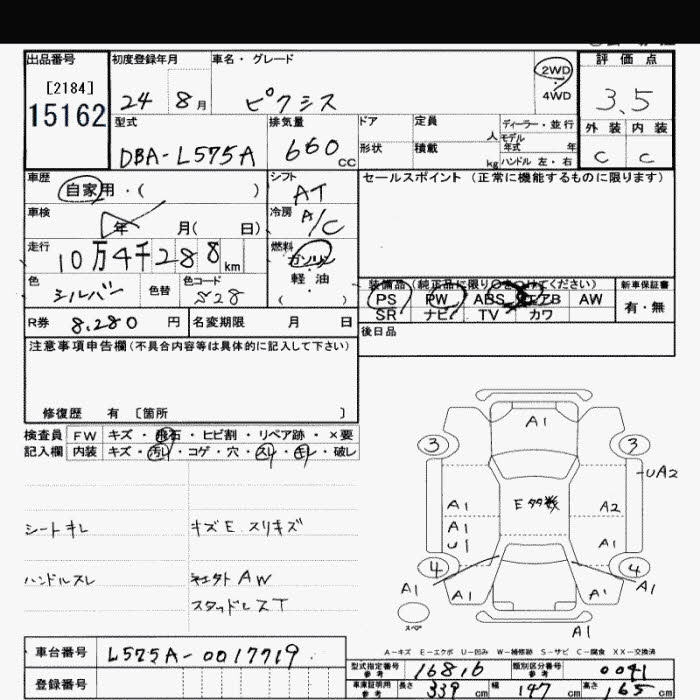 出品番号
[2184]
15162
初度登録年月
24 8 月
車名・グレード
ピクシス
2WD
・
4WD
評価点
3.5
外装 内装
C C
型式
DBA-L575A
排気量
660 CC
ドア
形状
定員 人
積載 kg
ディーラー・並行
モデル
年式 年
ハンドル 左・右
車歴
自家用・( )
シフト
AT
セールスポイント (正常に機能するものに限ります)
車検
年 月( 日)
冷房
A/C
走行
10万4千288 km
燃料
ガソリン
軽・油
( )
色
シルバー
色替
色コード
S28
装備品 (純正品に限り○をつけてください)
PS PW ABS エアB AW
SR ナビ TV カワ
新車保証書
有・無
R券 8,280 円
名変期限 月 日
後日品
注意事項申告欄(不具合内容等は具体的に記入して下さい)
修復歴 有 〔箇所 〕
検査員 FW キズ・飛石・ヒビ割・リペア跡・×要
記入欄 内装 キズ・汚れ・コゲ・穴・スレ・キレ・破レ
シートキレ
キズE スリキズ
ハンドルスレ
社外AW
スタッドレスT
A1
3 3
UA2
E多数
A1 A2
A1
U1 A1
4 4
A1 A1 A1 A1
スペア
A1
A-キズ E-エクボ U-凹み W-補修跡 S-サビ C-腐食 XX-交換済
車台番号 L575A-0017719
登録番号
型式指定番号 参考 16816
類別区分番号 参考 0041
車庫証明用 参考 長さ 339 cm 幅 147 cm 高さ 165 cm